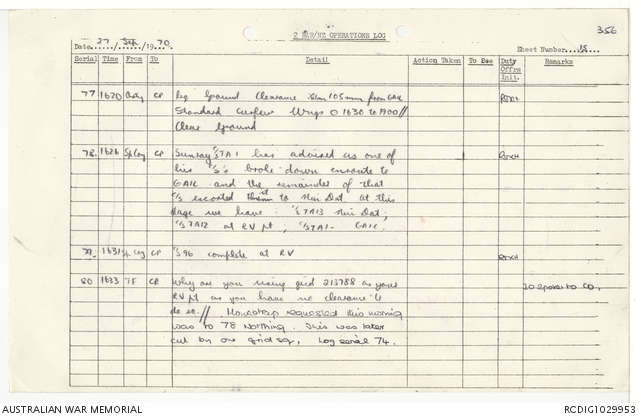 356
2 RAR/NZ OPERATIONS LOG
Date 27 Sep 1970 Sheet Number 15
Serial Time From To Detail Action Taken To See Duty Offrs Init. Remarks
77 1620 CP Req Ground Clearance 105mm from GAIL
Standard Curfew 1630 to 1900//
Clear Ground
78. 1626 Sp Coy CP Sunray TA1 has advised us one of
his c/s's broke down enroute to
GAIL and the remainder of that
c/s escorted to Nui Dat. At this
stage we have: c/s TA13 Nui Dat;
c/s TA12 at RV pt; c/s TA1- GAIL.
79. 1631 Sp Coy CP c/s 96 complete at RV
80 1633 TF CP Why are you using grid 213788 as your IO spoke to CO.
RV pt as you have no clearance to
do so.// requested this morning
was to 78 Northing. This was later
cut by one grid sq. Log serial 74.
AUSTRALIAN WAR MEMORIAL
RCDIG1029953